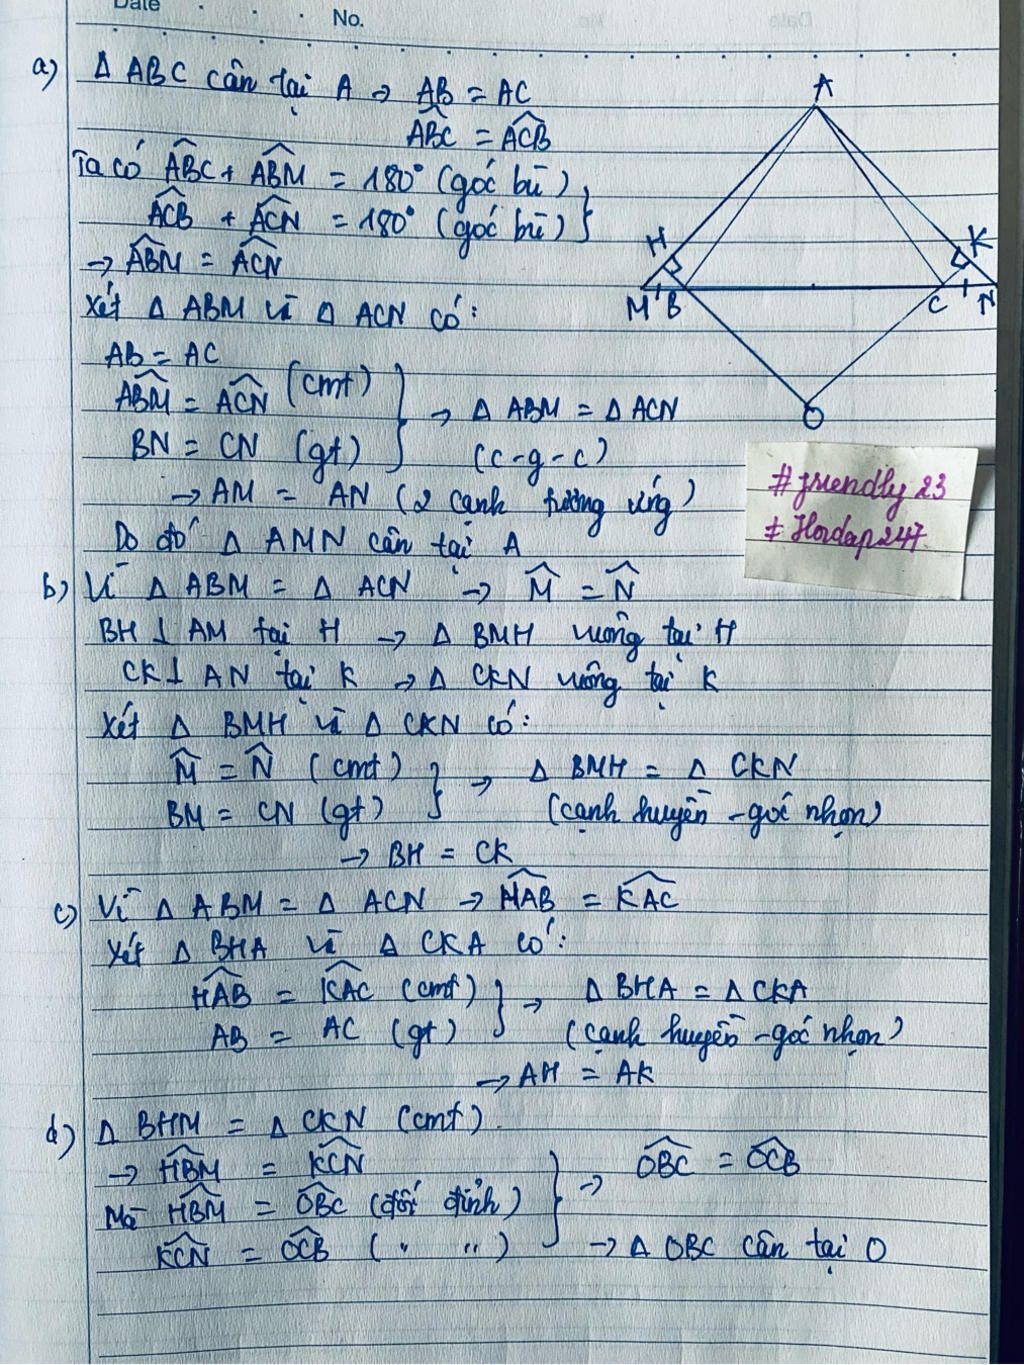 Date
No.
a) Δ ABC cân tại A → AB = AC
ABC = ACB
Ta có ABC + ABM = 180° (góc bù)
ACB + ACN = 180° (góc bù)
→ ABM = ACN
Xét Δ ABM và Δ ACN có:
AB = AC
ABM = ACN (cmt)
BN = CN (gt)
→ Δ ABM = Δ ACN
(c-g-c)
→ AM = AN (2 cạnh tương ứng)
Do đó Δ AMN cân tại A
A
H
K
M B
C N
O
#friendly23
# Hoidap247
b) Vì Δ ABM = Δ ACN → M = N
BH ⊥ AM tại H → Δ BMH vuông tại H
CK ⊥ AN tại K → Δ CKN vuông tại K
Xét Δ BMH và Δ CKN có:
M = N (cmt)
BM = CN (gt)
→ Δ BMH = Δ CKN
(cạnh huyền - góc nhọn)
→ BH = CK
c) Vì Δ ABM = Δ ACN → HAB = KAC
Xét Δ BHA và Δ CKA có:
HAB = KAC (cmt)
AB = AC (gt)
→ Δ BHA = Δ CKA
(cạnh huyền - góc nhọn)
→ AH = AK
d) Δ BHM = Δ CKN (cmt)
→ HBM = KCN
Mà HBM = OBC (đối đỉnh)
KCN = OCB (" ")
→ OBC = OCB
→ Δ OBC cân tại O